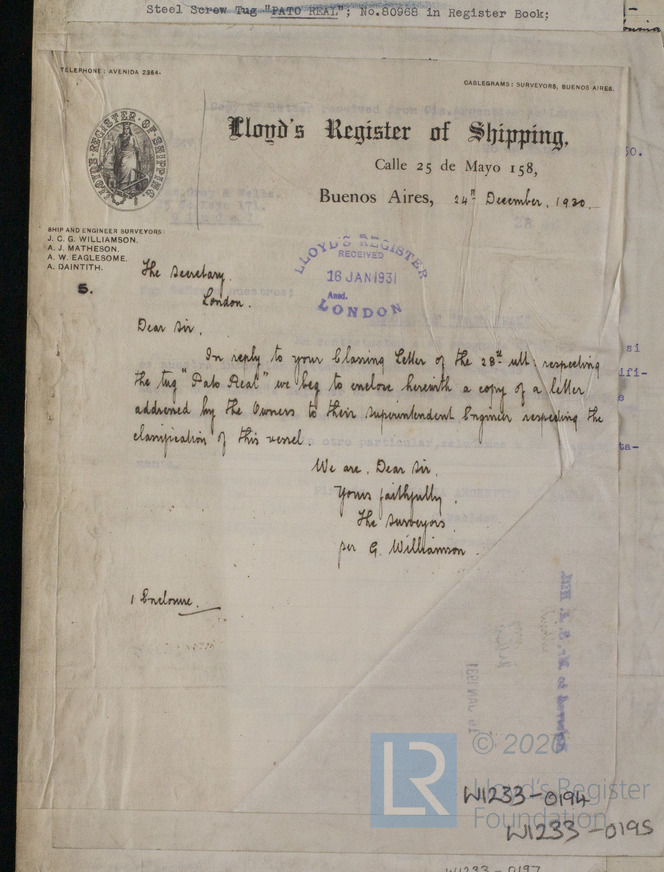 Steel Screw Tug "PATO REAL"; No.80968 in Register Book;
TELEPHONE: AVENIDA 2364.
CABLEGRAMS: SURVEYORS, BUENOS AIRES.
LLOYD'S REGISTER OF SHIPPING
Lloyd's Register of Shipping,
Calle 25 de Mayo 158,
Buenos Aires, 24th December, 1930.
SHIP AND ENGINEER SURVEYORS:
J. C. G. WILLIAMSON.
A. J. MATHESON.
A. W. EAGLESOME.
A. DAINTITH.
S.
LLOYD'S REGISTER
RECEIVED
16 JAN 1931
Ansd.
LONDON
The Secretary.
London.
Dear Sir,
In reply to your Classing Letter of the 28th ult: respecting
the tug "Pato Real" we beg to enclose herewith a copy of a letter
addressed by the Owners to their Superintendent Engineer respecting the
classification of this vessel.
We are, Dear Sir,
Yours faithfully
The Surveyors.
per G. Williamson.
1 Enclosure.
LR
© 2020
Lloyd's Register
Foundation
W1233-0194
W1233-0195
W1233-0197